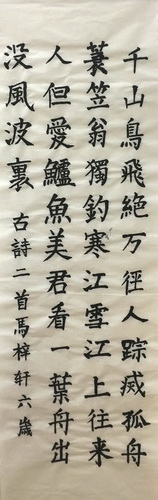 千山鳥飛絕万徑人踪烕孤舟
蓑笠翁獨釣寒江雪江上往来
人但愛鱸魚美君看一葉舟出
没風波裏
古詩二首馬梓轩六歲